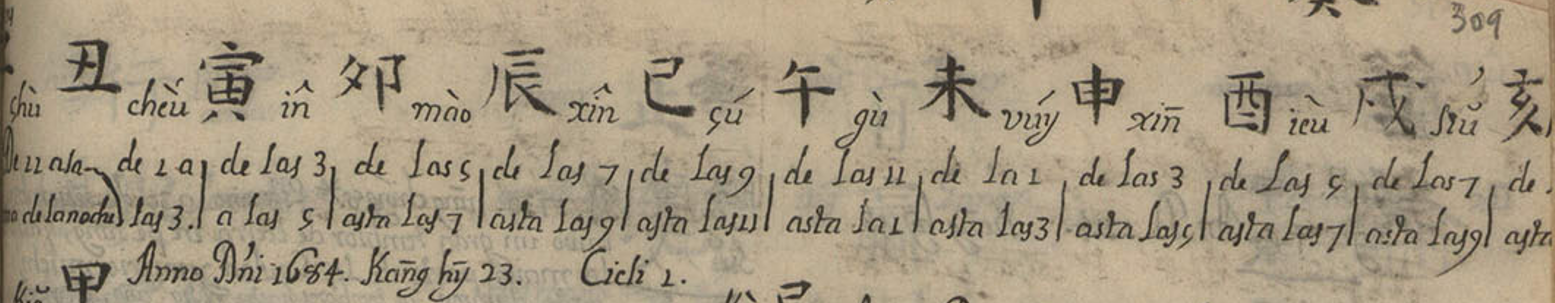 309
chù 丑 cheǔ 寅 în 卯 mào 辰 xîn 巳 çú 午 gù 未 vúy 申 xīn 酉 ieù 戌 siǔ 亥
De 11 asta de 1 a de las 3 de las 5 de las 7 de las 9 de las 11 de la 1 de las 3 de las 5 de las 7 de
de la noche las 3. a las 5 asta las 7 asta las 9 asta las 11 asta la 1 asta las 3 asta las 5 asta las 7 asta las 9 asta
甲 Anno Dn̄i 1684. Kāng hȳ 23. Cicli 1.